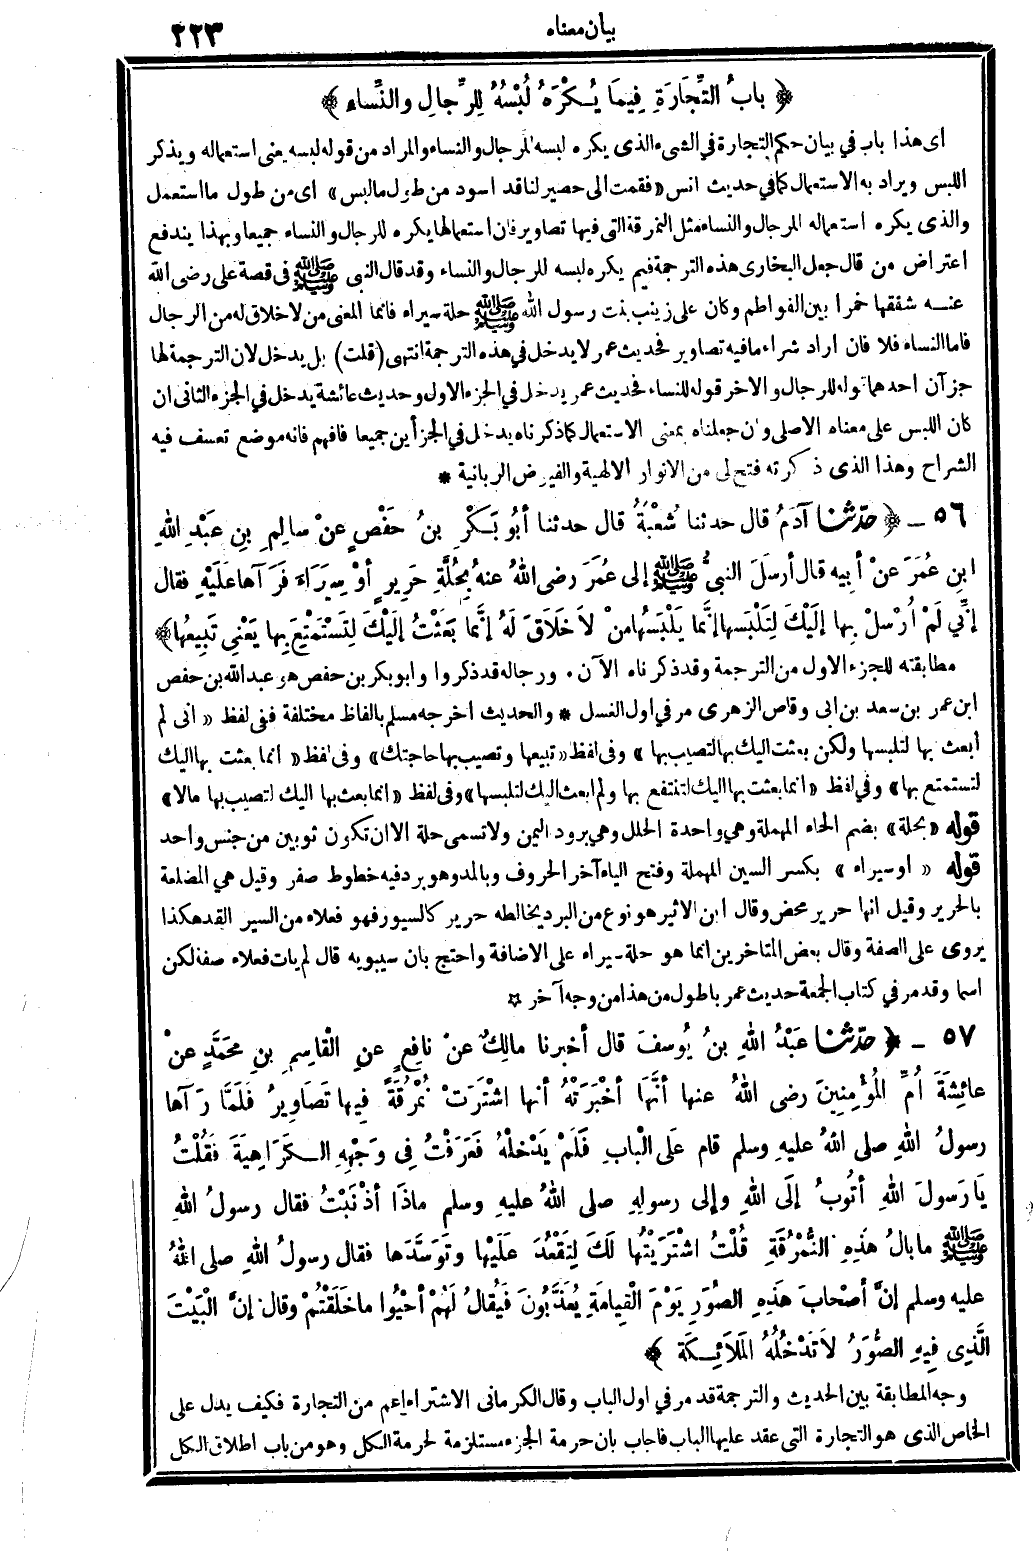 بيان معناه
٢٢٣
﴿ بابُ التِّجَارَةِ فِيمَا يُكْرَهُ لُبْسُهُ لِلرِّجالِ والنِّساءِ ﴾
اى هذا باب في بيان حكم التجارة في الشىء الذى يكره لبسه للرجال والنساء والمراد من قوله لبسه يعنى استعماله ويذكر
اللبس ويراد به الاستعمال كما في حديث انس «فقمت الى حصير لنا قد اسود من طول ما لبس» اى من طول ما استعمل
والذى يكره استعماله للرجال والنساء مثل النمرقة التى فيها تصاوير فان استعمالها يكره للرجال والنساء جميعا وبهذا يندفع
اعتراض من قال جعل البخارى هذه الترجمة فيم يكره لبسه للرجال والنساء وقد قال النبى ﷺ فى قصة على رضى الله
عنه شققها خمرا بين الفواطم وكان على زينب بنت رسول الله ﷺ حلة سيراء فانما المعنى من لا خلاق له من الرجال
فاما النساء فلا فان اراد شراء ما فيه تصاوير فحديث عمر لا يدخل في هذه الترجمة انتهى (قلت) بل يدخل لان الترجمة لها
جزآن احدهما قوله للرجال والآخر قوله للنساء فحديث عمر يدخل في الجزء الاول وحديث عائشة يدخل في الجزء الثانى ان
كان اللبس على معناه الاصلى وان جعلناه بمعنى الاستعمال كما ذكرناه يدخل في الجزأين جميعا فافهم فانه موضع تعسف فيه
الشراح وهذا الذى ذكرته فتح لى من الانوار الالهية والفيوض الربانية *
٥٦ ـ ﴿ حدّثنا آدَمُ قال حدثنا شُعْبَةُ قال حدثنا أبُو بَكْرِ بنُ حَفْصٍ عنْ سالِمِ بنِ عبْدِ اللهِ
ابنِ عُمَرَ عنْ أبِيهِ قال أرسَلَ النبيُّ ﷺ إلى عُمَرَ رضى اللهُ عنهُ بِحُلَّةِ حَرِيرٍ أوْ سِيَرَاءَ فَرَآها عليْهِ فقال
إنِّي لَمْ أُرْسِلْ بِها إلَيْكَ لِتَلْبَسَها إنَّما يَلْبَسُها منْ لاَ خَلاَقَ لَهُ إنَّما بَعَثْتُ إلَيْكَ لِتَسْتَمْتِعَ بِها يَعْنِى تَبِيعُها﴾
مطابقته للجزء الاول من الترجمة وقد ذكرناه الآن . ورجاله قد ذكروا وابو بكر بن حفص هو عبدالله بن حفص
ابن عمر بن سعد بن ابى وقاص الزهرى مر في اول الغسل * والحديث اخرجه مسلم بالفاظ مختلفة ففى لفظ « انى لم
أبعث بها لتلبسها ولكن بعثت اليك بها لتصيب بها » وفى لفظ «تبيعها وتصيب بها حاجتك» وفى لفظ « انما بعثت بها اليك
لتستمتع بها» وفي لفظ «انما بعثت بها اليك لتنتفع بها ولم ابعث اليك لتلبسها» وفى لفظ «انما بعث بها اليك لتصيب بها مالا»
قوله «بحلة» بضم الحاء المهملة وهي واحدة الحلل وهي برود اليمن ولا تسمى حلة الا ان تكون ثوبين من جنس واحد
قوله « او سيراء » بكسر السين المهملة وفتح الياء آخر الحروف وبالمد وهو برد فيه خطوط صفر وقيل هي المضلعة
بالحرير وقيل انها حرير محض وقال ابن الاثير هو نوع من البرد يخالطه حرير كالسيور فهو فعلاء من السير القد هكذا
يروى على الصفة وقال بعض المتاخرين انما هو حلة سيراء على الاضافة واحتج بان سيبويه قال لم يات فعلاء صفة لكن
اسما وقد مر في كتاب الجمعة حديث عمر باطول من هذا من وجه آخر *
٥٧ ـ ﴿ حدّثنا عبْدُ اللهِ بنُ يُوسفَ قال أخبرنا مالِكٌ عنْ نافِعٍ عنِ الْقاسِمِ بنِ محَمَّدٍ عنْ
عائِشَةَ أُمِّ الْمُؤْمِنِينَ رضى اللهُ عنها أنَّها أخْبَرَتْهُ أنها اشْتَرَتْ نُمْرُقَةً فِيها تَصَاوِيرُ فَلَمَّا رَآها
رسولُ اللهِ صلى اللهُ عليهِ وسلم قام علَى الْبابِ فَلَمْ يَدْخلْهُ فَعَرَفْتُ فِى وَجْهِهِ الْكَرَاهِيَةَ فَقُلْتُ
يَا رَسولَ اللهِ أتُوبُ إلَى اللهِ وإلى رسولِهِ صلى اللهُ عليهِ وسلم ماذَا أذْنَبْتُ فقال رسولُ اللهِ
ﷺ ما بالُ هَذِهِ النُّمْرُقَةِ قُلْتُ اشْتَرَيْتُها لَكَ لِتَقْعُدَ عَلَيْها وتَوَسَّدَها فقال رسولُ اللهِ صلى اللهُ
عليه وسلم إنَّ أصْحابَ هَذِهِ الصُّوَرِ يَوْمَ الْقِيامَةِ يُعَذَّبُونَ فَيُقالُ لَهُمْ أحْيُوا ما خَلَقْتُمْ وقال إنَّ الْبَيْتَ
الَّذِى فِيهِ الصُّوَرُ لاَ تَدْخُلُهُ الْمَلاَئِكَةُ ﴾
وجه المطابقة بين الحديث والترجمة قد مر في اول الباب وقال الكرمانى الاشتراء اعم من التجارة فكيف يدل على
الخاص الذى هو التجارة التى عقد عليها الباب فاجاب بان حرمة الجزء مستلزمة لحرمة الكل وهو من باب اطلاق الكل